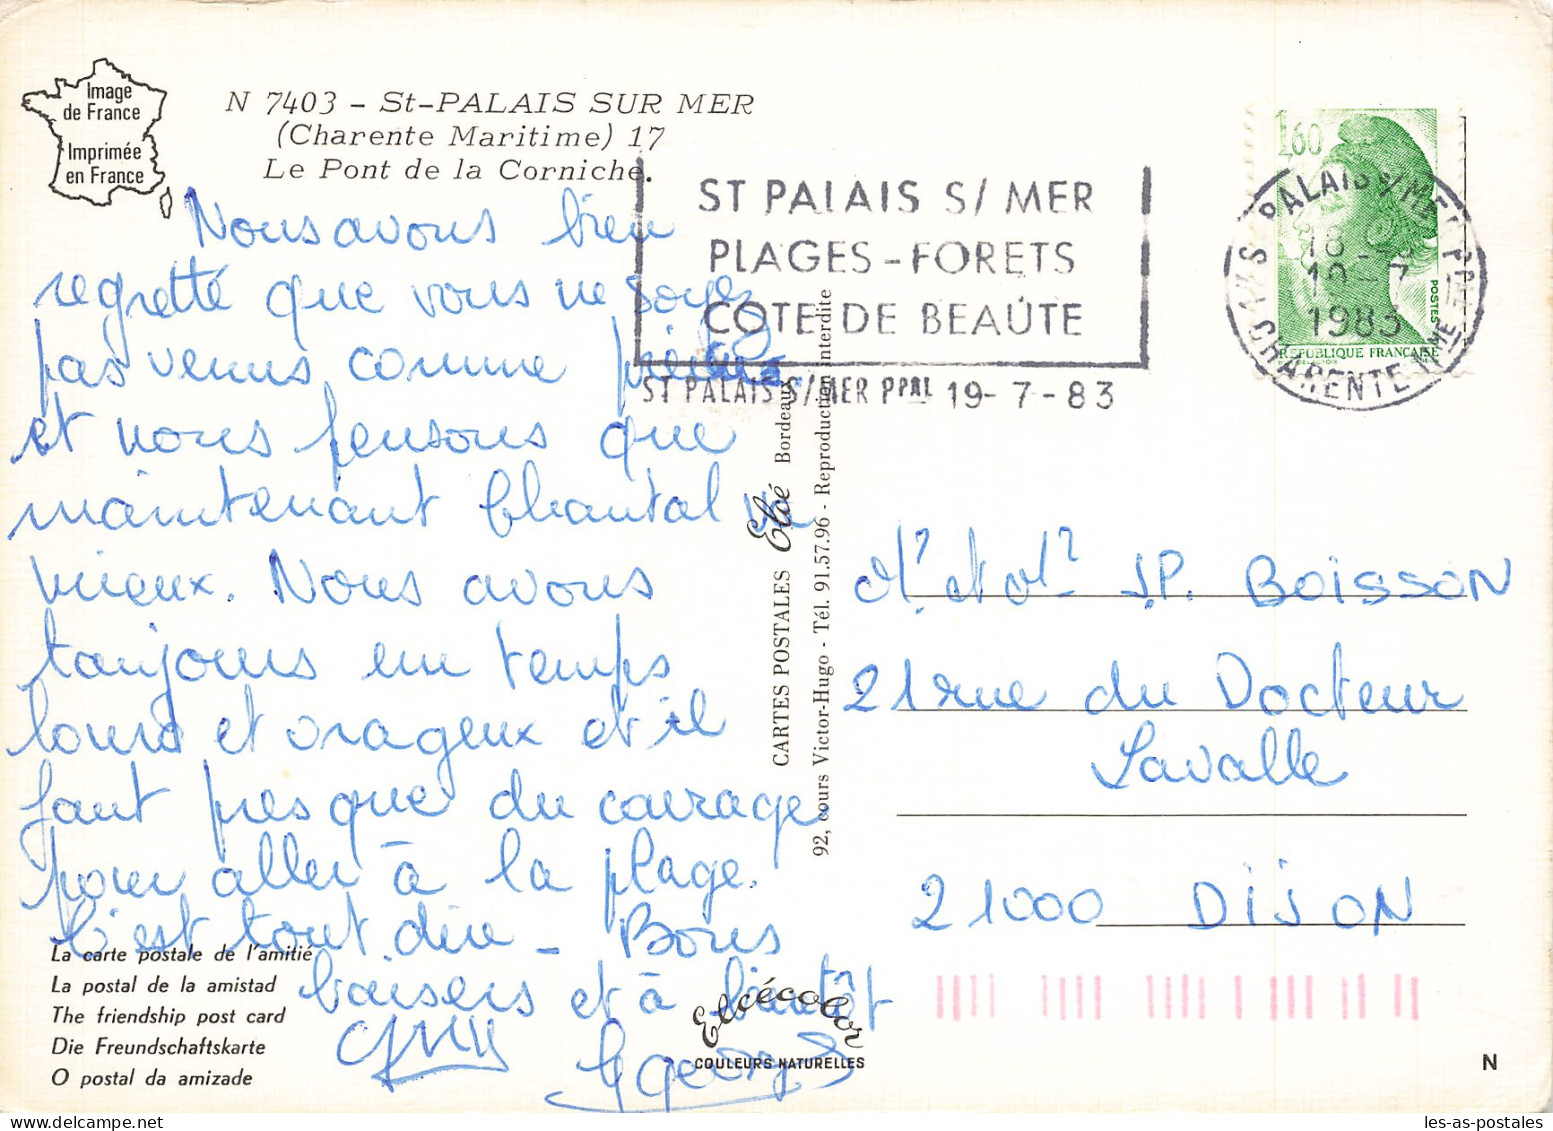 Image
de France
Imprimée
en France
N 7403 - St-PALAIS SUR MER
(Charente Maritime) 17
Le Pont de la Corniche.
Nous avons bien
regretté que vous ne soyez
pas venus comme prévu
et nous pensons que
maintenant Chantal va
mieux. Nous avons
toujours un temps
lourd et orageux et il
faut presque du courage
pour aller à la plage.
C'est tout dire - Bons
baisers et à bientôt
Georges
La carte postale de l'amitié
La postal de la amistad
The friendship post card
Die Freundschaftskarte
O postal da amizade
ST PALAIS S/ MER
PLAGES - FORETS
COTE DE BEAUTE
ST PALAIS S/MER PPAL 19-7-83
1,60
POSTES
REPUBLIQUE FRANÇAISE
17 ST PALAIS S/MER PPAL
18
19-7
1983
CHARENTE MME
CARTES POSTALES Elcé Bordeaux
92, cours Victor-Hugo - Tél. 91.57.96 - Reproduction interdite
Elcécolor
COULEURS NATURELLES
Mr et Me J.P. BOISSON
21 rue du Docteur
Lavalle
21000 DIJON
N
les-as-postales